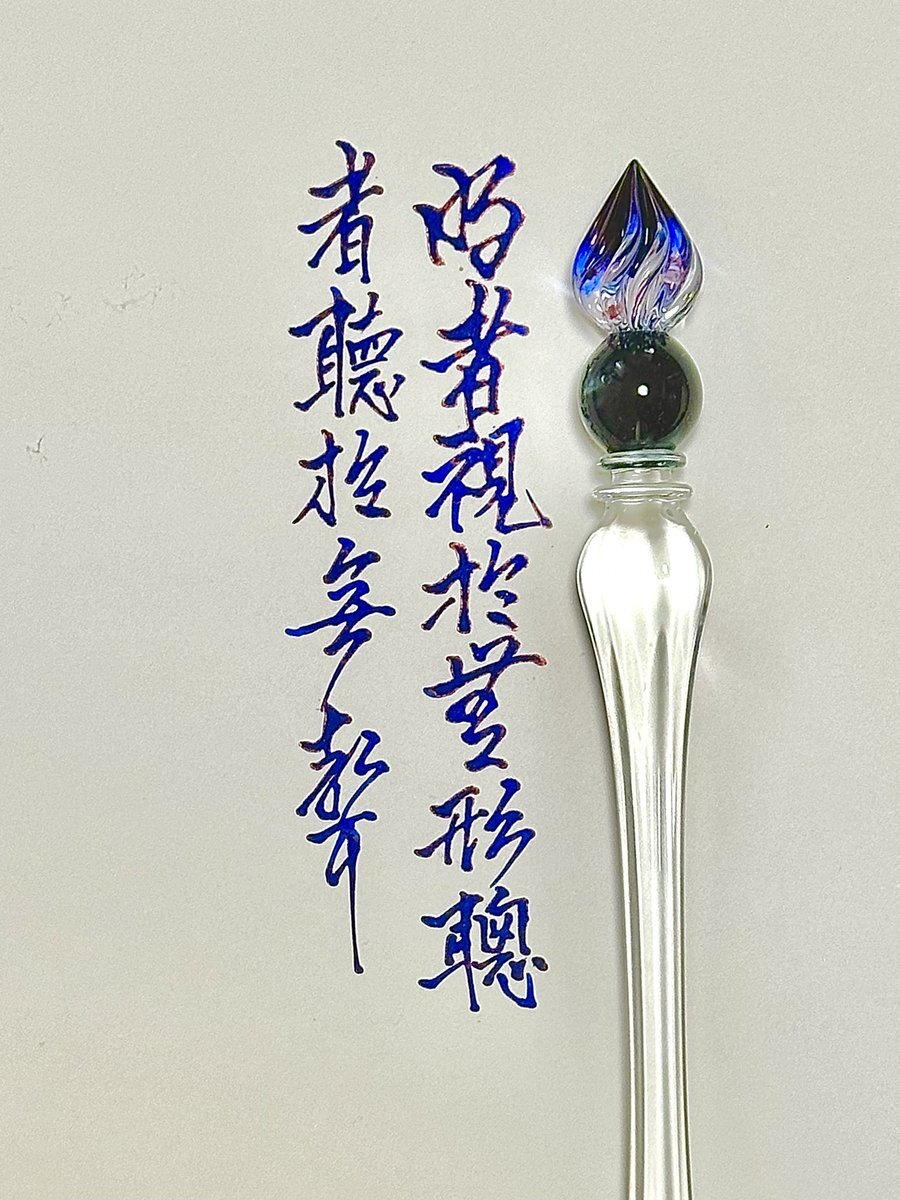 明者視於無形聰
者聽於無聲